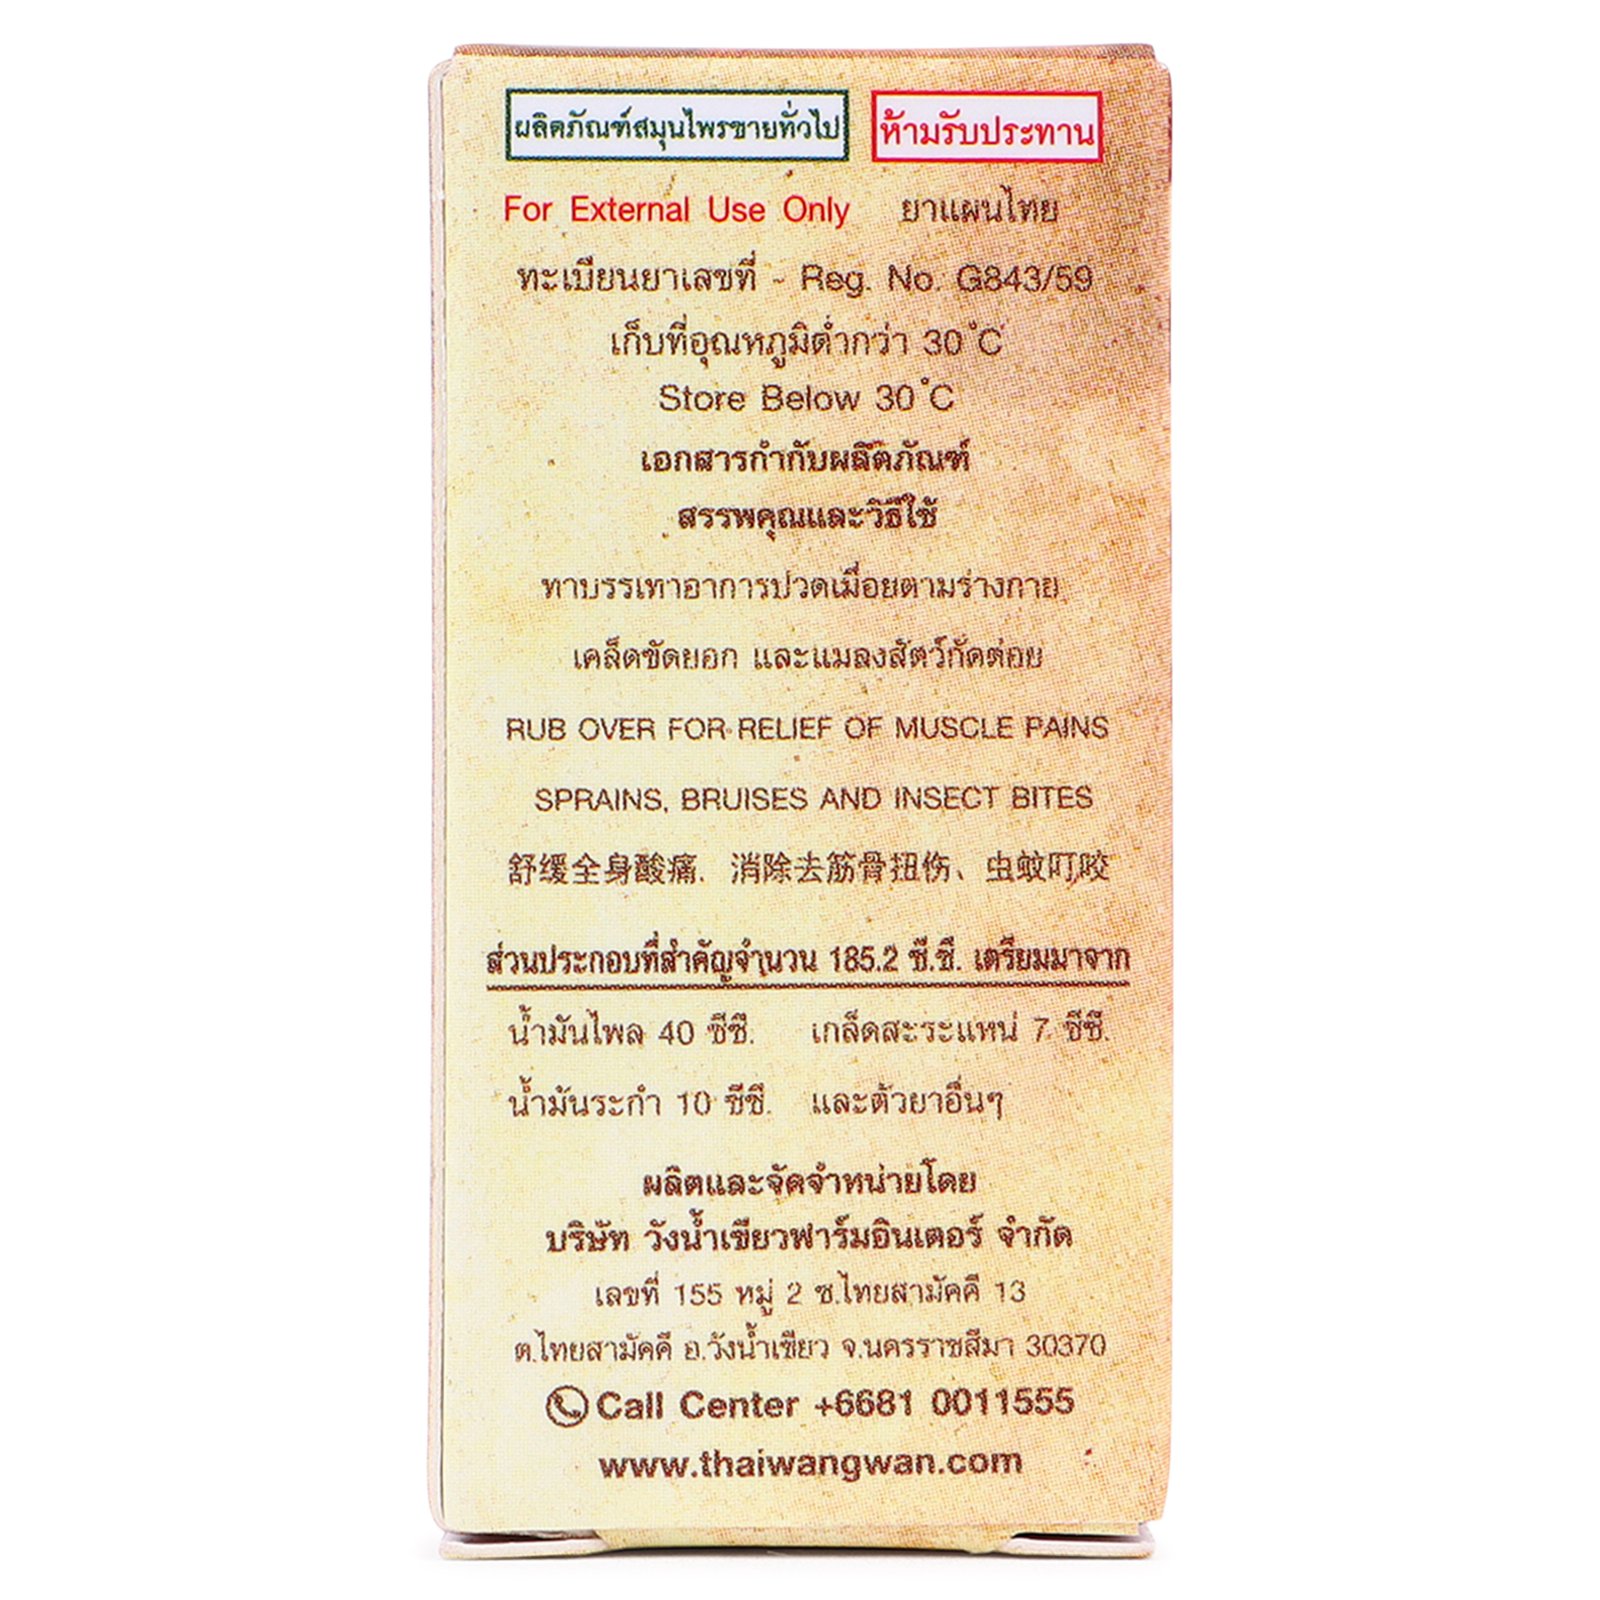 ผลิตภัณฑ์สมุนไพรขายทั่วไป ห้ามรับประทาน
For External Use Only ยาแผนไทย
ทะเบียนยาเลขที่ - Reg. No. G843/59
เก็บที่อุณหภูมิต่ำกว่า 30°C
Store Below 30°C
เอกสารกำกับผลิตภัณฑ์
สรรพคุณและวิธีใช้
ทาบรรเทาอาการปวดเมื่อยตามร่างกาย
เคล็ดขัดยอก และแมลงสัตว์กัดต่อย
RUB OVER FOR RELIEF OF MUSCLE PAINS
SPRAINS, BRUISES AND INSECT BITES
舒缓全身酸痛. 消除去筋骨扭伤、虫蚊叮咬
ส่วนประกอบที่สำคัญจำนวน 185.2 ซี.ซี. เตรียมมาจาก
น้ำมันไพล 40 ซีซี. เกล็ดสะระแหน่ 7 ซีซี.
น้ำมันระกำ 10 ซีซี. และตัวยาอื่นๆ
ผลิตและจัดจำหน่ายโดย
บริษัท วังน้ำเขียวฟาร์มอินเตอร์ จำกัด
เลขที่ 155 หมู่ 2 ซ.ไทยสามัคคี 13
ต.ไทยสามัคคี อ.วังน้ำเขียว จ.นครราชสีมา 30370
Call Center +6681 0011555
www.thaiwangwan.com